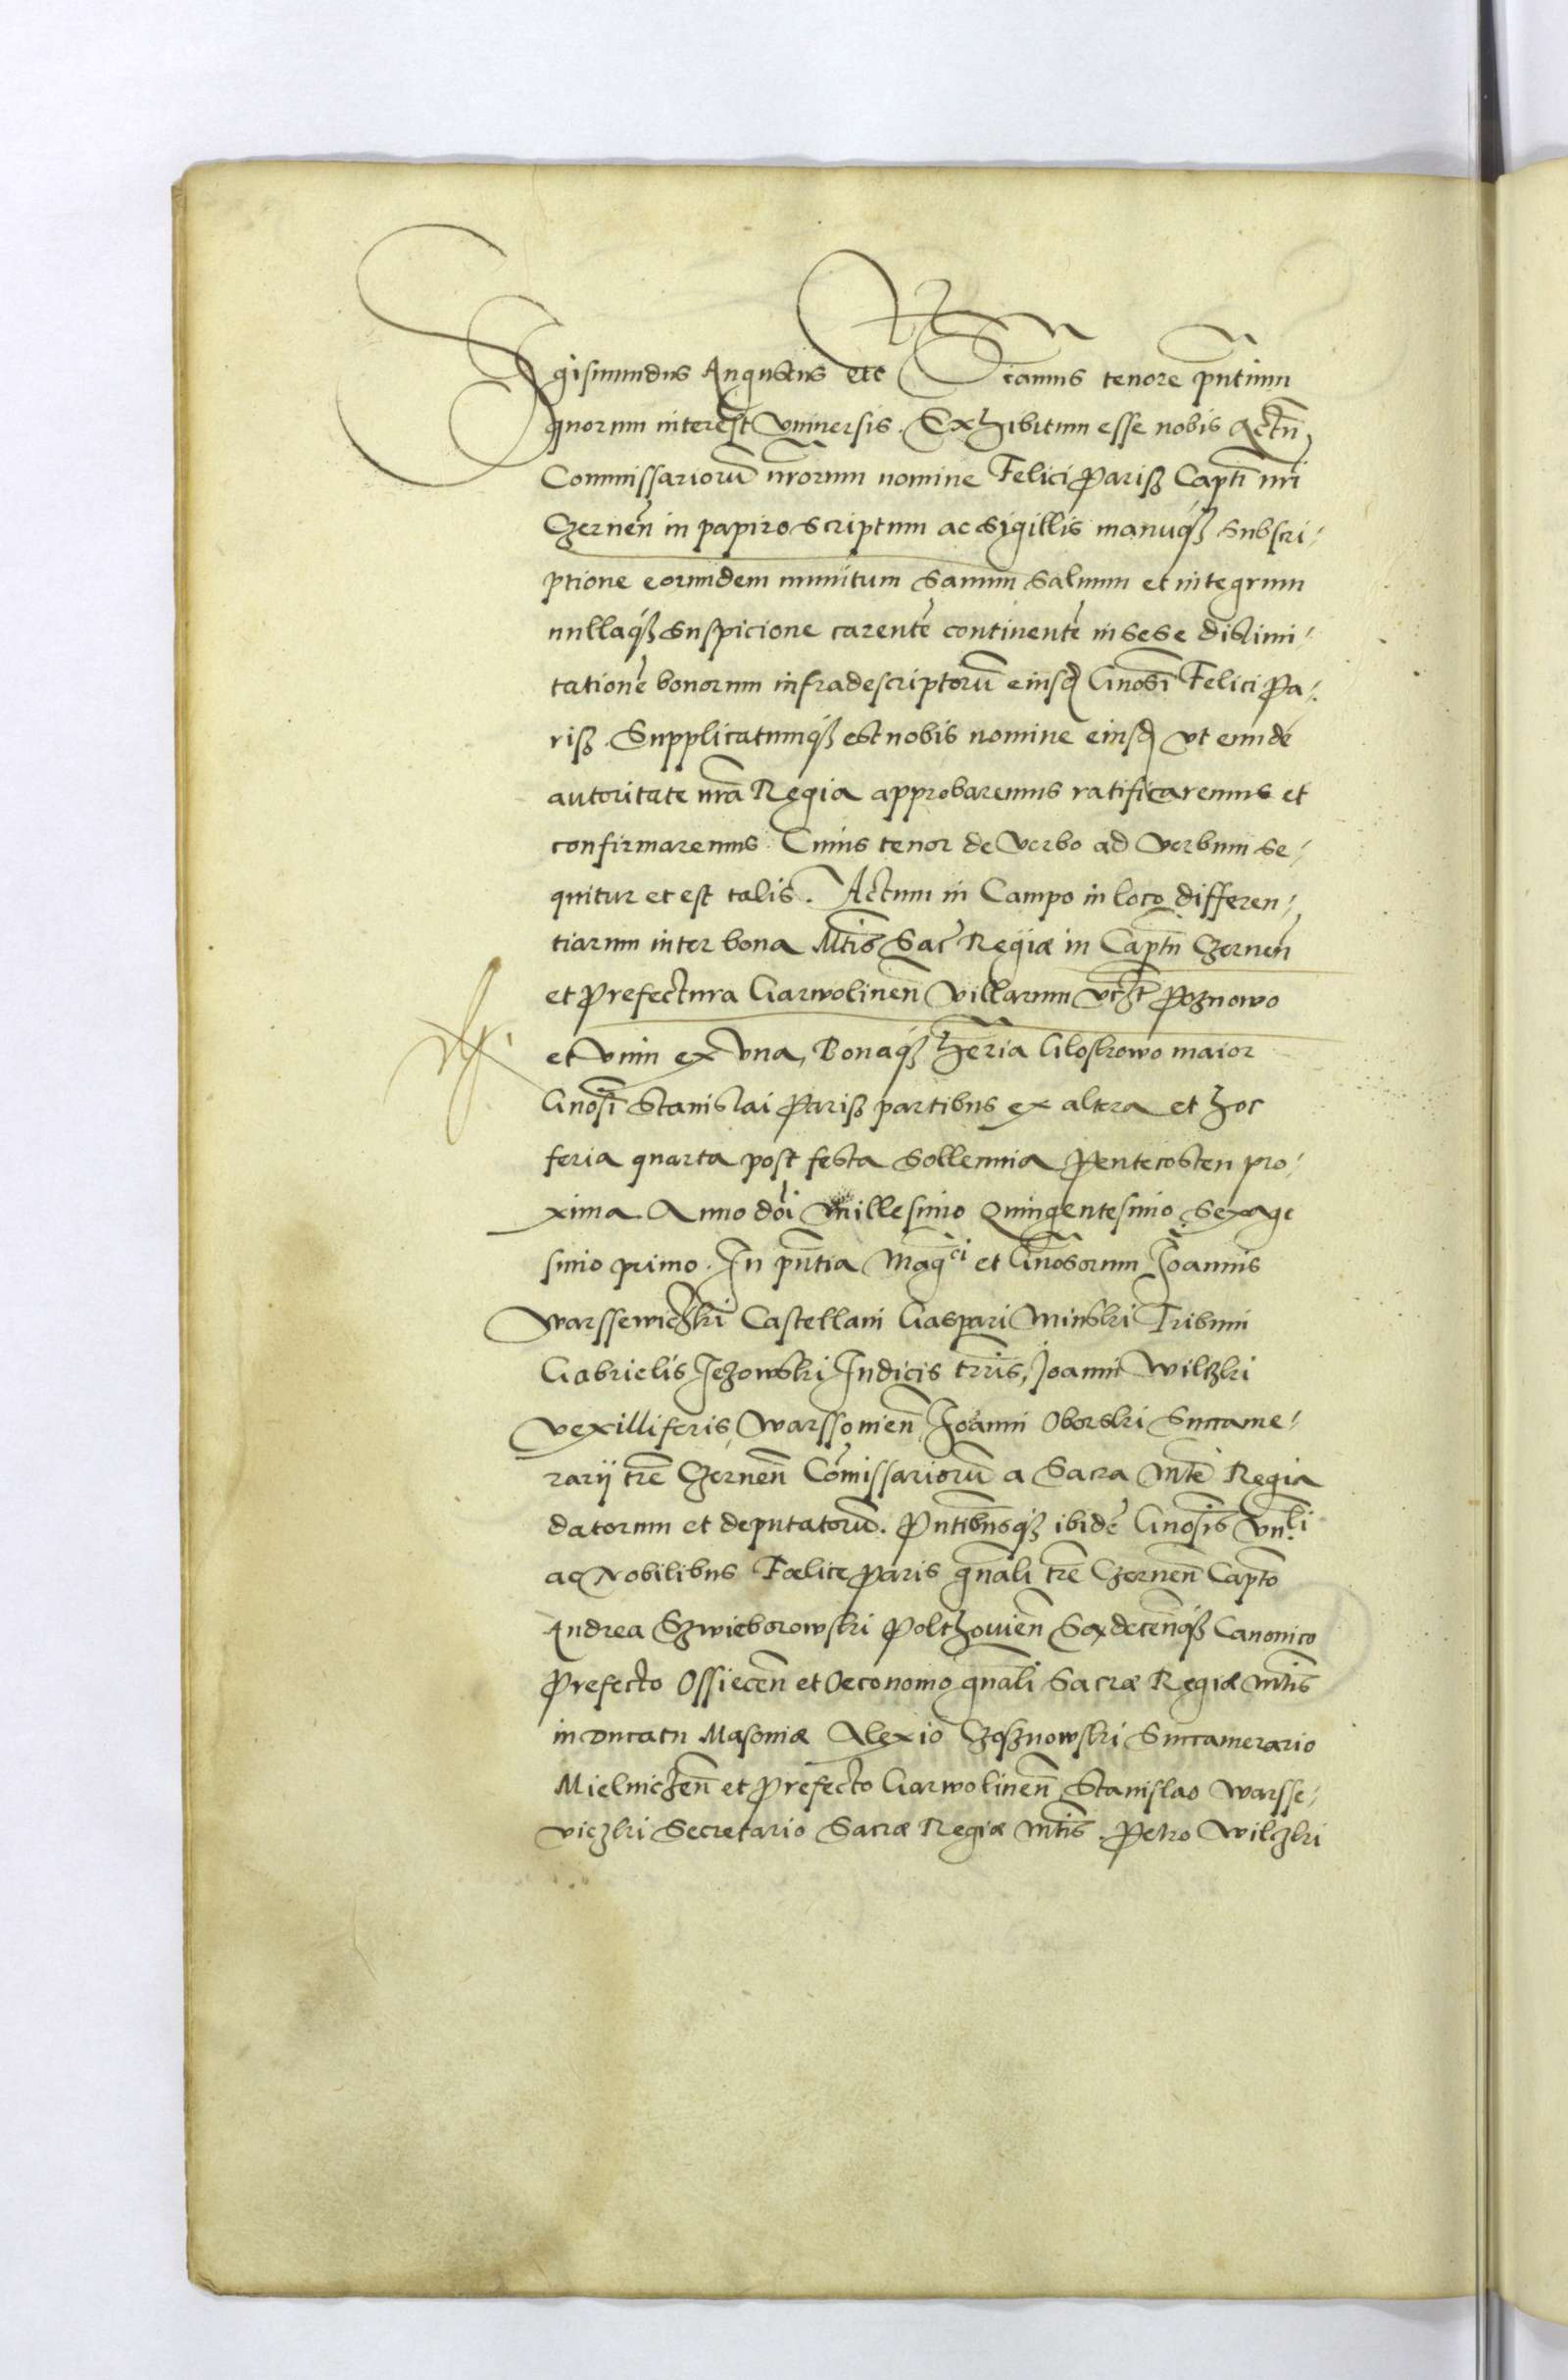 Sigismundus Augustus etc Sciamus tenore pn̄tium
quorum interest vniuersis. Exhibitum esse nobis Actū
Commissariorū nr̄orum nomine Felici Parisß Captī nr̄i
Czernen̄ in papiro scriptum ac sigillis manuq3 subscri-
ptione eorundem munitum Sanum Saluum et integrum
nullaq3 suspicione carentē continentē in sese dislimi-
tationē bonorum infradescriptorū eiusd Gnosī Felici Pa-
riß. Supplicatumq3 est nobis nomine eiusd vt eundē
autoritate nr̄a Regia approbaremus ratificaremus et
confirmaremus Cuius tenor de verbo ad verbum se-
quitur et est talis. Actum in Campo in loco differen-
tiarum inter bona Mtīs Sac̄ Regiæ in Captn̄ Czernen̄
et Prefectura Garwolinen̄ villarum vczt Poznowo
et Vnin ex vna, Bonaq3 hær̄ia Gloskowo maior
Gnosī Stanislai Pariß partibus ex altera et hoc
feria quarta post festa sollemnia Pentecosten pro-
xima Anno dōi Millesimo Quingentesimo Sexage
simo primo. In pn̄tia Maḡci et Gnōsorum Joannis
Warssewiczki Castellani Gaspari Minski Tribuni
Gabrielis Jezowski Judicis trr̄is, Joanni Wilczki
vexilliferis, Warssouien̄ Joanni Oborski Succame-
rarij trē Czernen̄ Cōmissariorū a Sacra Mtē Regia
datorum et deputatorū. Pntībusq3 ibidē Gnosīs vn̄li
ac Nobilibus Fœlice Paris gn̄ali trē Czernen̄ Captō
Andrea Szwieborowski Polthouien̄ Canonico
Prefecto Ossiecen̄ et Oeconomo gn̄ali Sacræ Regiæ Mtīs
in Ducatu Masouiæ Alexio Czosznowski Succamerario
Mielniczen̄ et Prefecto Garwolinen̄ Stanislao Warsse-
viczki Secretario Sacræ Regiæ Mtīs. Petro Wilczki